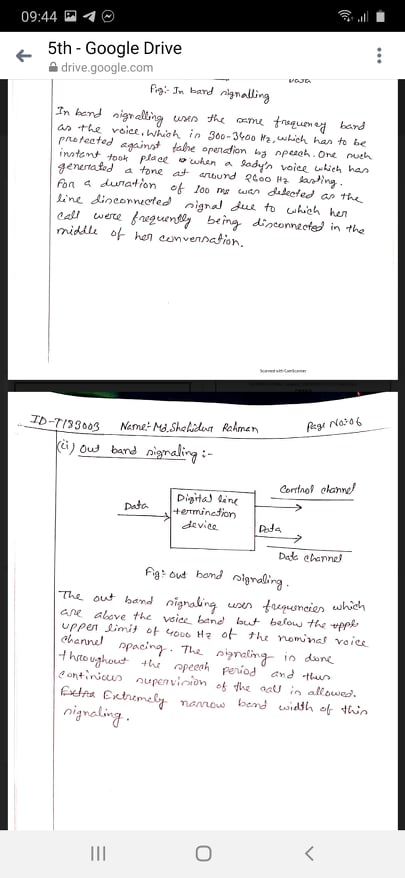 09:44
5th - Google Drive
drive.google.com
Data
Fig:- In band signalling
In band signalling uses the same frequency band
as the voice, which is 300-3400 Hz, which has to be
protected against false operation by speech. One such
instant took place when a lady's voice which has
generated a tone at around 2600 Hz lasting.
For a duration of 100 ms was detected as the
line disconnected signal due to which her
call were frequently being disconnected in the
middle of her conversation.
Scanned with CamScanner
ID-T183003 Name:- Md. Shahidur Rahman Page No:-06
(ii) Out band signaling :-
Control channel
Digital line
Data
termination
device
Data
Data channel
Fig: out band signaling.
The out band signaling uses frequencies which
are above the voice band but below the
upper limit of 4000 Hz of the nominal voice
channel spacing. The signaling is done
throughout the speech period and thus
continious supervision of the call is allowed.
Extra Extremely narrow band width of this
signaling.